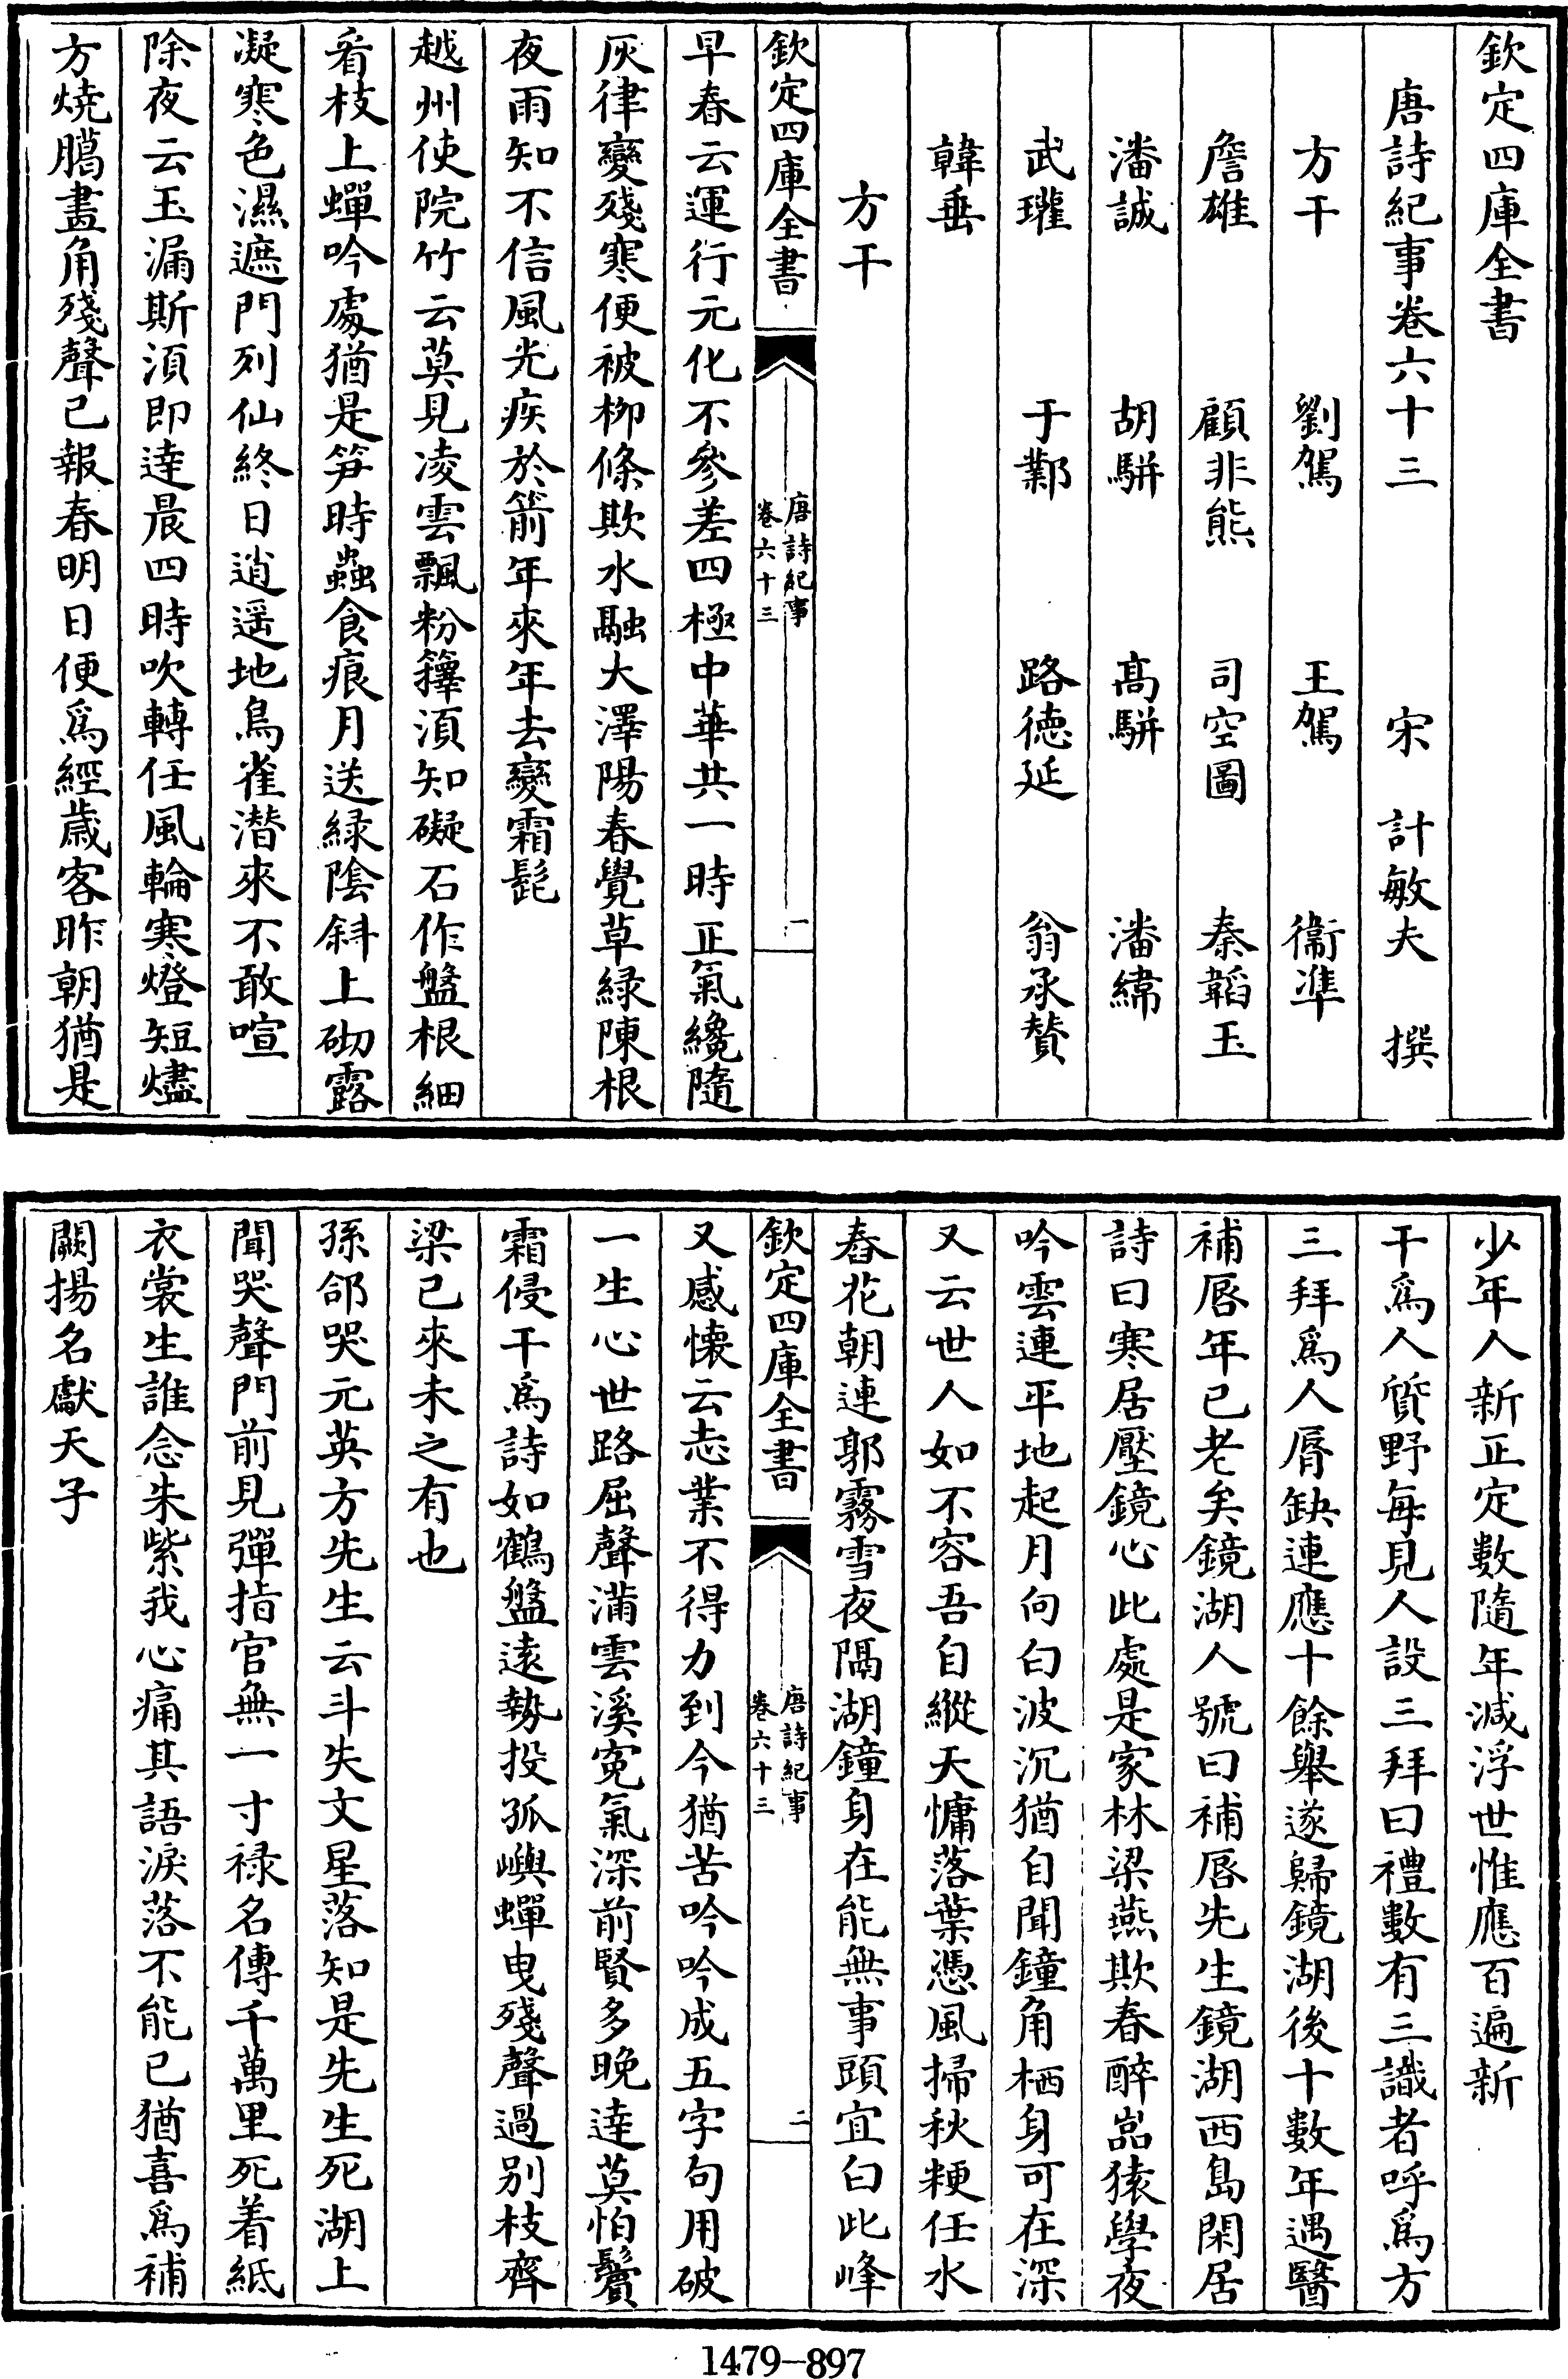 欽定四庫全書
唐詩紀事卷六十三　宋　計敏夫　撰
方干　劉駕　王駕　衞準
詹雄　顧非熊　司空圖　秦韜玉
潘誠　胡騈　髙騈　潘緯
武瓘　于鄴　路德延　翁承贊
韓垂
方干
欽定四庫全書　唐詩紀事卷六十三　一
早春云運行元化不參差四極中華共一時正氣纔隨
灰律變殘寒便被柳條欺水融大澤陽春覺草緑陳根
夜雨知不信風光疾於箭年來年去變霜髭
越州使院竹云莫見凌雲飄粉籜須知礙石作盤根細
看枝上蟬吟處猶是笋時蟲食痕月送緑陰斜上砌露
凝寒色濕遮門列仙終日逍遥地鳥雀潛來不敢喧
除夜云玉漏斯須即達晨四時吹轉任風輪寒燈短燼
方燒臈畫角殘聲已報春明日便爲經歲客昨朝猶是
少年人新正定數隨年減浮世惟應百遍新
干爲人質野每見人設三拜曰禮數有三識者呼爲方
三拜爲人脣缺連應十餘舉遂歸鏡湖後十數年遇醫
補唇年已老矣鏡湖人號曰補唇先生鏡湖西島閑居
詩曰寒居壓鏡心此處是家林梁燕欺春醉嵓猿學夜
吟雲連平地起月向白波沉猶自聞鐘角栖身可在深
又云世人如不容吾自縱天慵落葉憑風掃秋粳任水
舂花朝連郭霧雪夜隔湖鐘身在能無事頭宜白此峰
欽定四庫全書　唐詩紀事卷六十三　二
又感懐云志業不得力到今猶苦吟吟成五字句用破
一生心世路屈聲滿雲溪寃氣深前賢多晚達莫怕鬢
霜侵干爲詩如鶴盤逺勢投孤嶼蟬曳殘聲過别枝齊
梁已來未之有也
孫郃哭元英方先生云斗失文星落知是先生死湖上
聞哭聲門前見彈指官無一寸禄名傳千萬里死着紙
衣裳生誰念朱紫我心痛其語淚落不能已猶喜爲補
闕揚名獻天子
1479—897